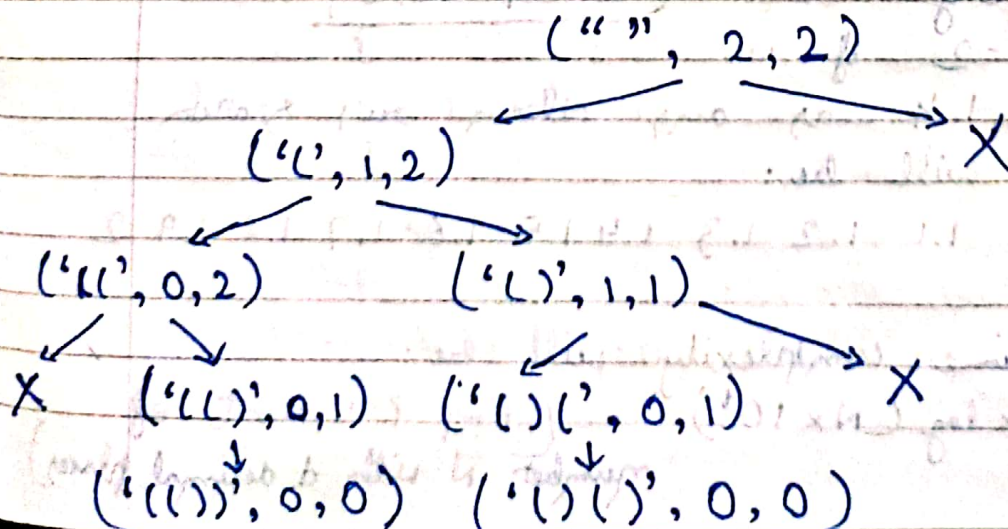 (“ ”, 2, 2)
(‘(’, 1, 2) X
(‘((’, 0, 2) (‘()’, 1, 1)
X (‘(()’, 0, 1) (‘()(’, 0, 1) X
(‘(())’, 0, 0) (‘()()’, 0, 0)